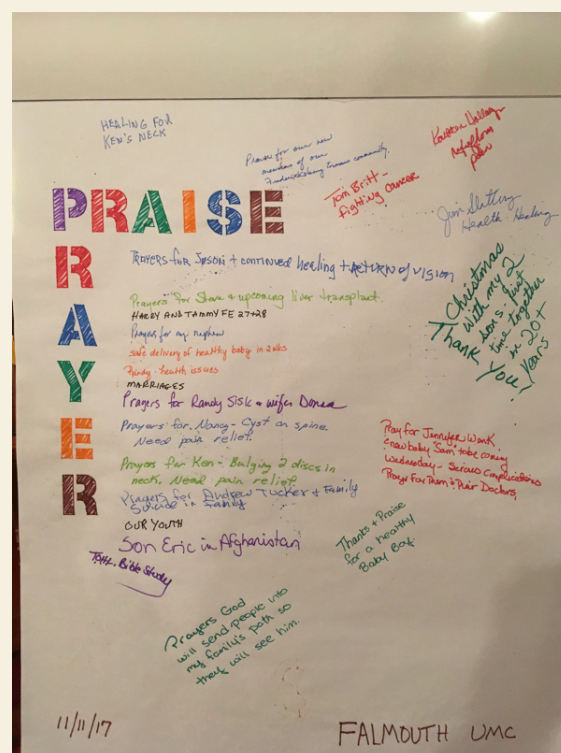 HEALING FOR
KEN'S NECK
Prayer for our new
members of our
community.
Tom Britt -
fighting cancer
Jim
Health Healing
PRAISE
PRAYER
PRAYERS FOR JASON + continued healing + RETURN of VISION
Prayers for Steve & upcoming liver transplant.
HARRY AND TAMMY FE 27+28
Prayers for my nephew
safe delivery of healthy baby in 2 wks
health issues
MARRIAGES
Prayers for Randy Sisk & wife Donna
Prayers for Nancy - Cyst on spine.
Need pain relief.
Prayers for Ken - Bulging 2 discs in
neck. Need pain relief
Prayers for Andrew Tucker + Family
Suicide in Family
OUR YOUTH
Son Eric in Afghanistan
Bible Study
Christmas
with my 2
sons, first
time together
in 20+
years
Thank You!
Pray for Jennifer Wonk
baby Sam to be coming
Wednesday - Serious Complications
Pray For Them & Their Doctors,
Thanks + Praise
for a healthy
Baby Boy
Prayers God
will send people into
my family's path so
they will see him.
11/11/17
FALMOUTH UMC